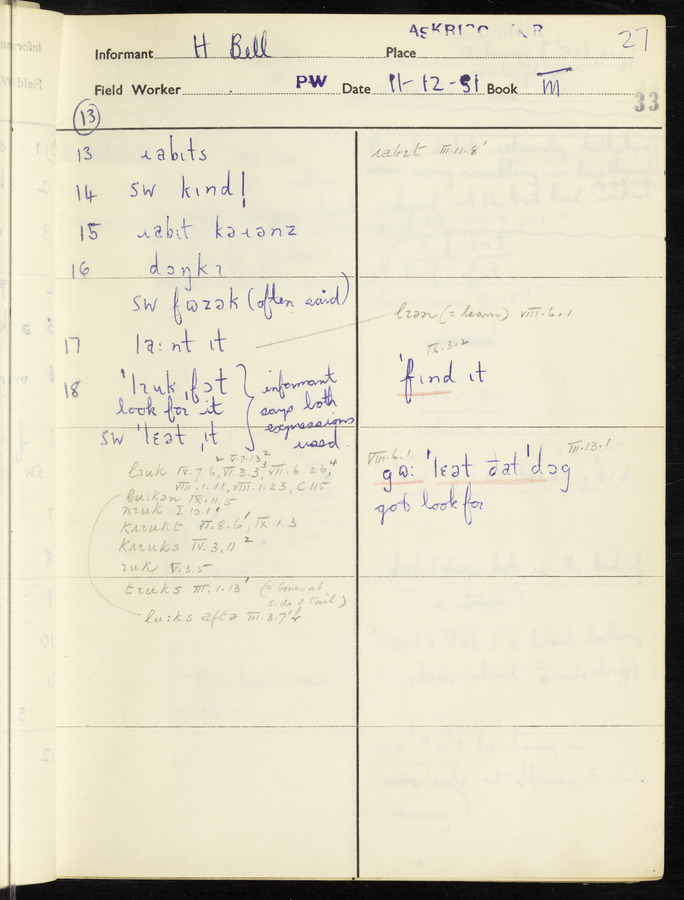 27
Informant H Bell Place
Field Worker PW Date 11-12-51 Book III
33
13
13 ɹabɪts
14 SW kɪnd!
15 ɹabɪt kəɹənz
16 dɔŋkɪ
SW fɷzək (often said)
17 la:nt ɪt
18 'lɪuk ˌfət } informant
look for it says both
SW 'lɛət ˌɪt expressions
used.
lɪuk IV.7.6, VI.3.3³, VII.6.26,⁴
VIII.1.11, VIII.1.23, C 115
lu:kən IX.11.5
nɪuk I.10.1'
kɹɪukt VI.8.6', IX.1.3
kɹɪuks IV.3.11²
ɪuk V.3.5
tɪuks III.1.13' (= bones at
side of tail)
lu:ks aftə III.3.7'
ɹabɪt III.11.8'
lɪən (= learn) VIII.6.1
IX.3.2
'fɪnd ɪt
VIII.6.1. III.13.1
gɷ: 'lɛət ðat 'dɔg
got look for